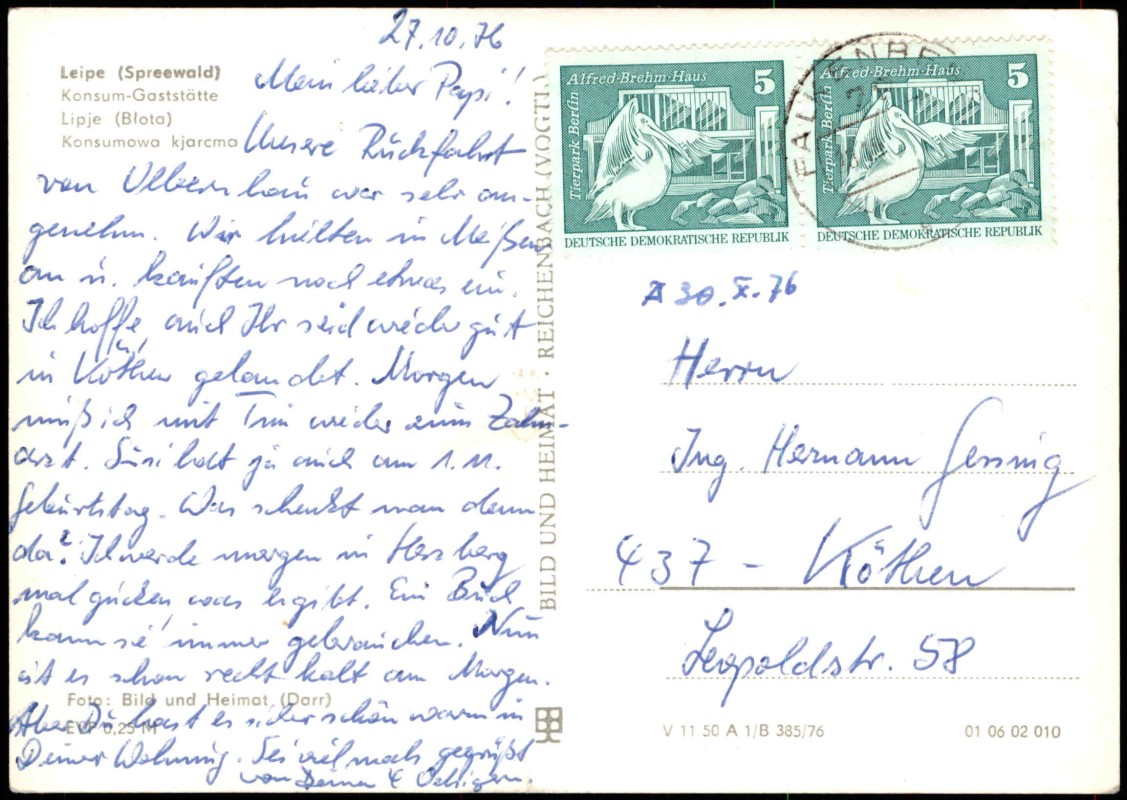 27.10.76
Leipe (Spreewald)
Konsum-Gaststätte
Lipje (Błota)
Konsumowa kjarcma
Mein lieber Papi!
Unsere Rückfahrt
von Olbernhau war sehr an-
genehm. Wir hielten in Meißen
an u. kauften noch etwas ein.
Ich hoffe, auch Ihr seid wieder gut
in Köthen gelandet. Morgen
muß ich mit Tim wieder zum Zahn-
arzt. Susi hat ja auch am 1.11.
Geburtstag. Was schenkt man denn
da? Ich werde morgen in Herzberg
mal gucken, was es gibt. Ein Buch
kann sie immer gebrauchen. Nun
ist es schon recht kalt am Morgen.
Aber Du hast es sicher schön warm in
Deiner Wohnung. Sei vielmals gegrüßt
von Deinen 4
Foto: Bild und Heimat (Darr)
EVP 0,25 M
BILD UND HEIMAT · REICHENBACH (VOGTL)
Alfred-Brehm-Haus 5
Tierpark Berlin
DEUTSCHE DEMOKRATISCHE REPUBLIK
Alfred-Brehm-Haus 5
Tierpark Berlin
DEUTSCHE DEMOKRATISCHE REPUBLIK
30.X.76
Herrn
Ing. Hermann Gessing
437 - Köthen
Leopoldstr. 58
V 11 50 A 1/B 385/76
01 06 02 010